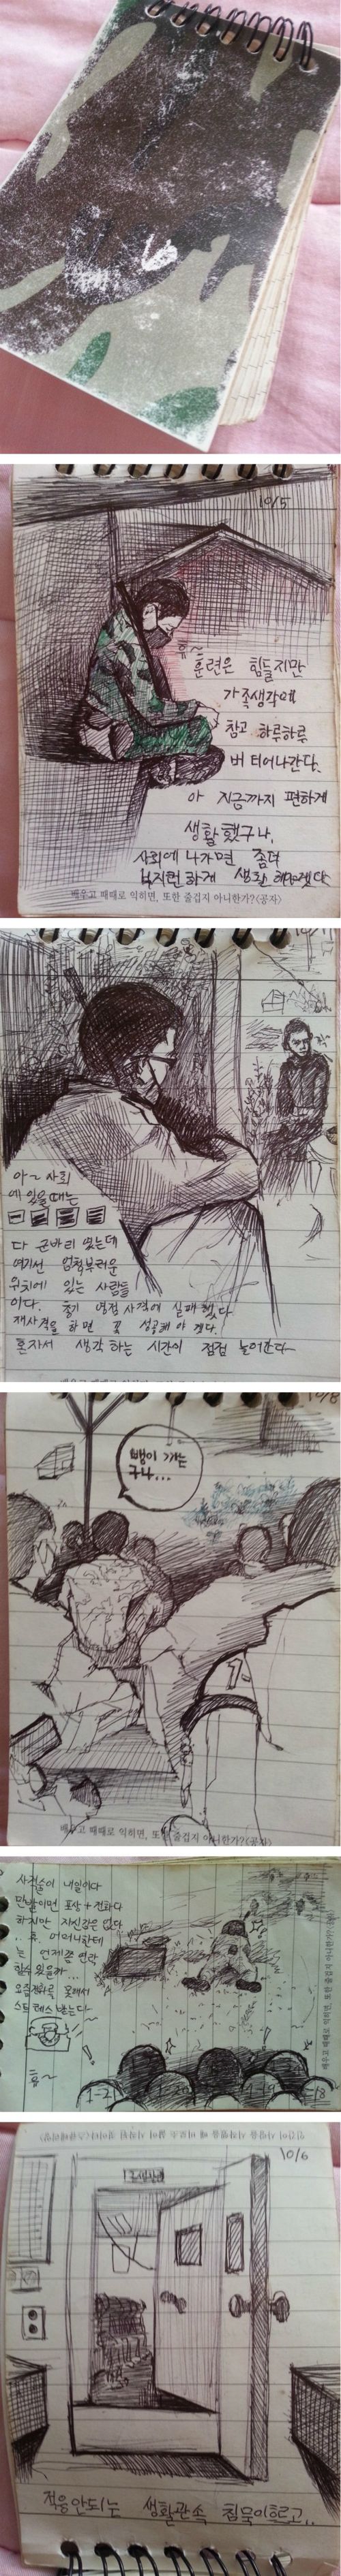 10/5
휴~
훈련은 힘들지만
가족생각에
참고 하루하루
버티어나간다.
아 지금까지 편하게
생활했구나.
사회에 나가면 좀더
부지런하게 생활 해야겠다
배우고 때때로 익히면, 또한 즐겁지 아니한가?<공자>
아~ 사회
에 있을때는
다 군바리 였는데
여기선 엄청부러운
위치에 있는 사람들
이다. 총기 영점 사격에 실패했다
재사격을 하면 꼭 성공해야 겠다.
혼자서 생각 하는 시간이 점점 늘어간다~
10/8
뺑이 까는
구나...
배우고 때때로 익히면, 또한 즐겁지 아니한가?<공자>
사격술이 내일이다
만발이면 포상+전화다
하지만 자신감은 없다
휴, 어머니한테
는 언제쯤 연락
할수 있을까...
요즘전화를 못해서
스트레스 받는다~
휴~
배우고 때때로 익히면, 또한 즐겁지 아니한가?<공자>
10/6
적응안되는 생활관속 침묵이흐르고..